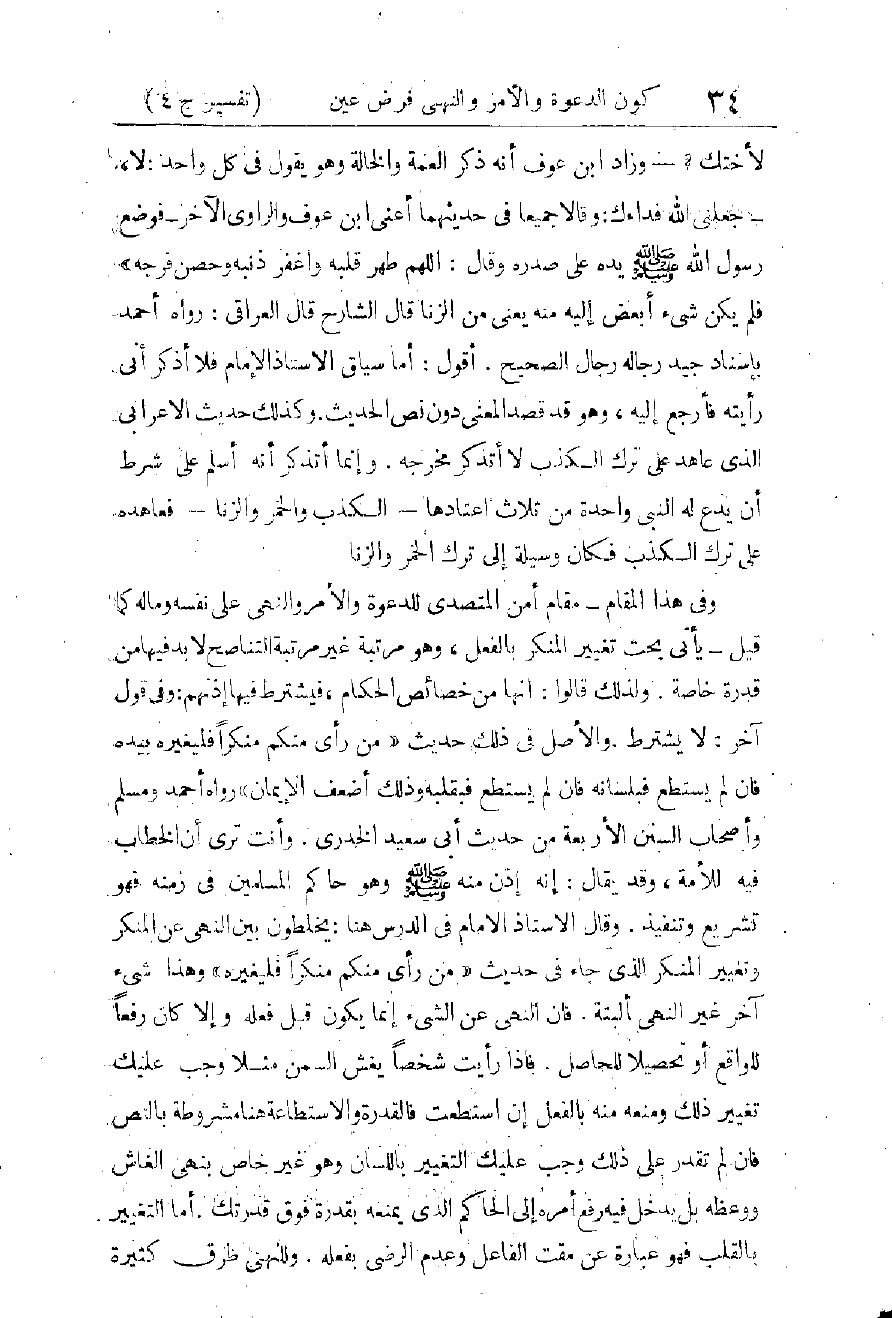 ٣٤ كون الدعوة والأمر والنهى فرض عين (تفسير ج ٤)
لأختك ؟ — وزاد ابن عوف أنه ذكر العمة والخالة وهو يقول فى كل واحد : لا،
ـ جعلنى الله فداءك : وقالا جميعا فى حديثهما أعنى ابن عوف والراوى الآخر ـ فوضع
رسول الله ﷺ يده على صدره وقال : اللهم طهر قلبه واغفر ذنبه وحصن فرجه»
فلم يكن شىء أبغض إليه منه يعنى من الزنا قال الشارح قال العراقى : رواه أحمد
بإسناد جيد رجاله رجال الصحيح . أقول : أما سياق الاستاذ الإمام فلا أذكر أنى
رأيته فأرجع إليه ، وهو قد قصد المعنى دون نص الحديث. وكذلك حديث الاعرابى
الذى عاهد على ترك الكذب لا أتذكر مخرجه . وإنما أتذكر أنه أسلم على شرط
أن يدع له النبى واحدة من ثلاث اعتادها – الكذب والخمر والزنا – فعاهده
على ترك الكذب فكان وسيلة إلى ترك الخمر والزنا
وفى هذا المقام ـ مقام أمن المتصدى للدعوة والأمر والنهى على نفسه وماله كما
قيل ـ يأتى بحث تغيير المنكر بالفعل ، وهو مرتبة غير مرتبة التناصح لا بد فيها من
قدرة خاصة . ولذلك قالوا : انها من خصائص الحكام ، فيشترط فيها إذنهم : وفى قول
آخر : لا يشترط . والأصل فى ذلك حديث « من رأى منكم منكراً فليغيره بيده
فان لم يستطع فبلسانه فان لم يستطع فبقلبه وذلك أضعف الإيمان» رواه أحمد ومسلم
وأصحاب السنن الأربعة من حديث أبى سعيد الخدرى . وأنت ترى أن الخطاب
فيه للأمة ، وقد يقال : إنه إذن منه ﷺ وهو حاكم المسلمين فى زمنه فهو
تشريع وتنفيذ . وقال الاستاذ الامام فى الدرس هنا : يخلطون بين النهى عن المنكر
وتغيير المنكر الذى جاء فى حديث « من رأى منكم منكراً فليغيره» وهذا شىء
آخر غير النهى ألبتة . فان النهى عن الشىء إنما يكون قبل فعله وإلا كان رفعاً
للواقع أو تحصيلا للحاصل . فاذا رأيت شخصاً يغش السمن مثلا وجب عليك
تغيير ذلك ومنعه منه بالفعل إن استطعت فالقدرة والاستطاعة هنا مشروطة بالنص
فان لم تقدر على ذلك وجب عليك التغيير باللسان وهو غير خاص بنهى الغاش
ووعظه بل يدخل فيه رفع أمره إلى الحاكم الذى يمنعه بقدرة فوق قدرتك . أما التغيير
بالقلب فهو عبارة عن مقت الفاعل وعدم الرضى بفعله . وللنهى طرق كثيرة